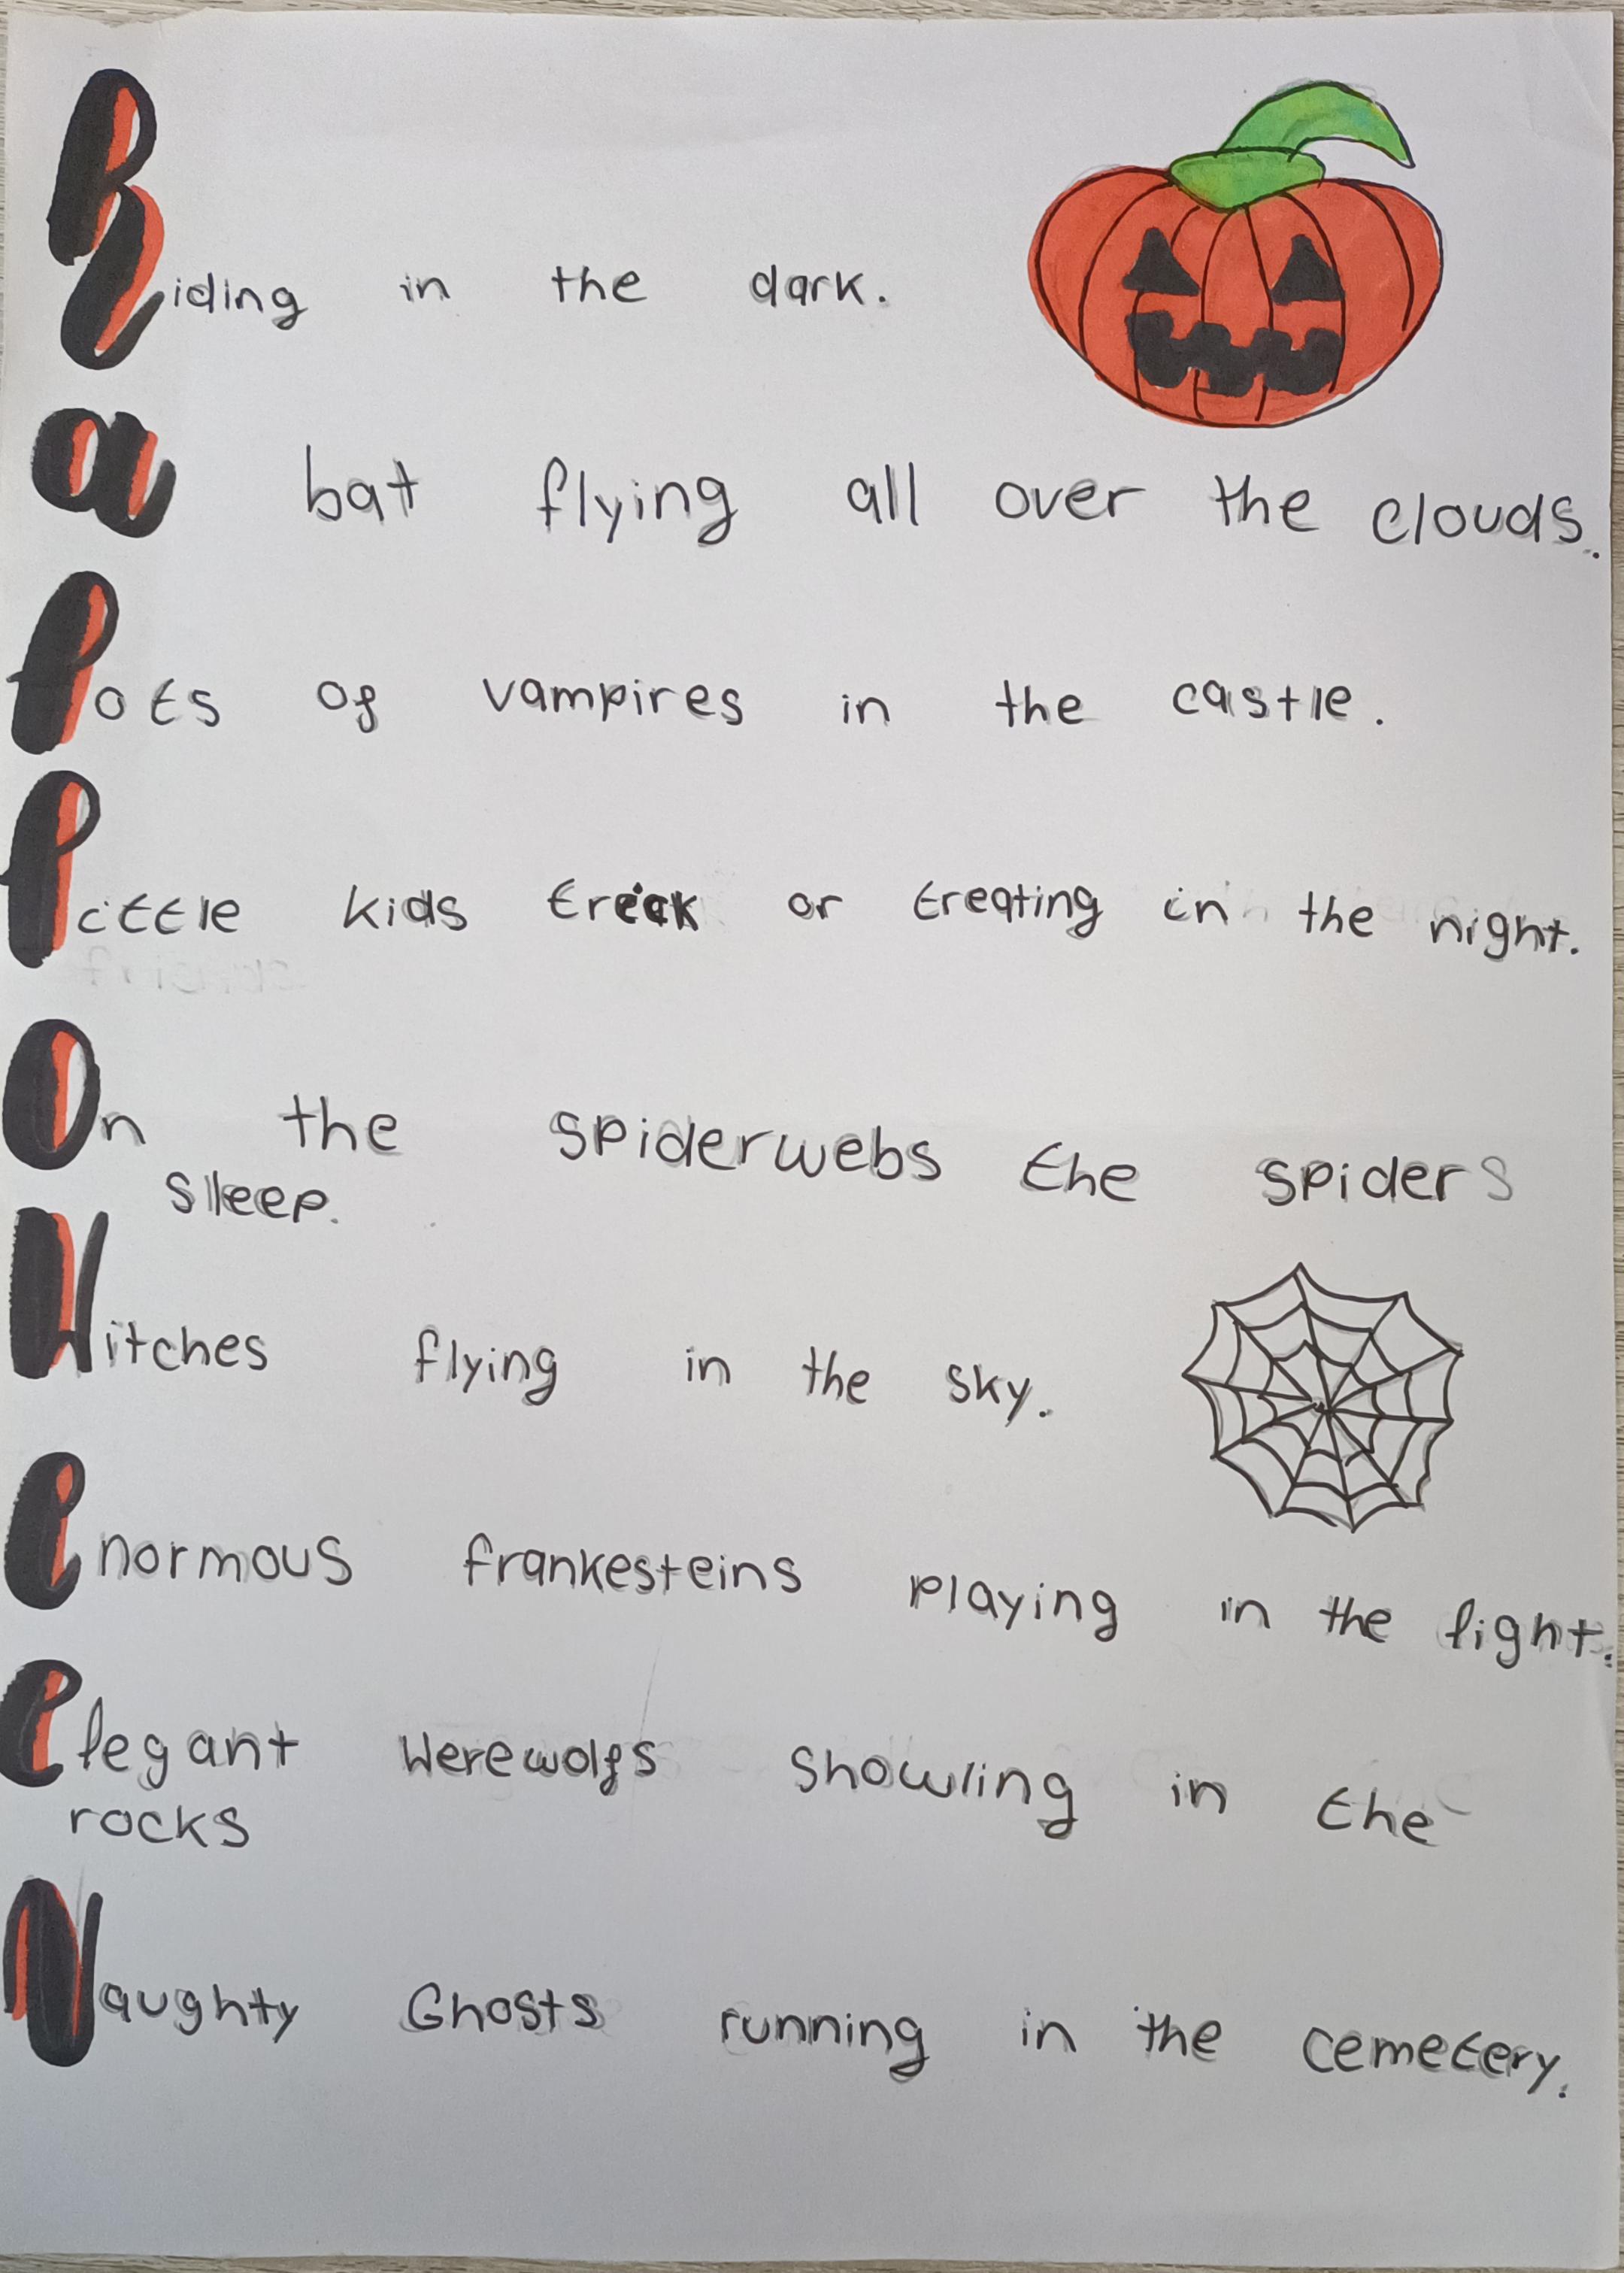 hiding in the dark.
a bat flying all over the clouds.
lots of vampires in the castle.
little kids treick or treating in the night.
On the spiderwebs the spiders
sleep.
Witches flying in the sky.
enormous frankesteins playing in the light.
elegant Werewolfs showling in the
rocks
Naughty Ghosts running in the cemetery.